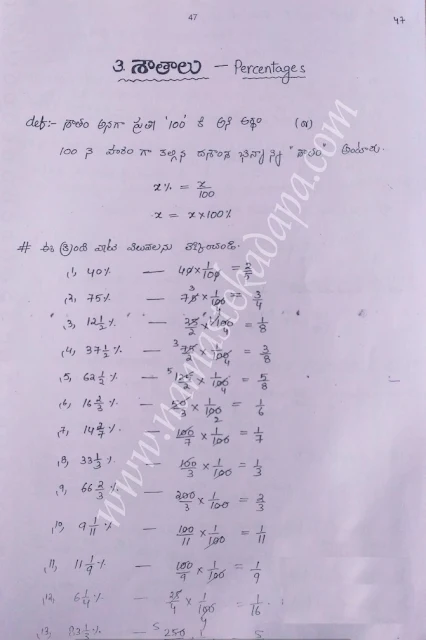 47
47
3. శాతాలు - Percentages
def:- శాతం అనగా ప్రతి '100' కి అని అర్థం (లేదా)
100 ని హారం గా కల్గిన దశాంశ భిన్నాన్ని "శాతం" అంటారు.
x% = x/100
x = x×100%
# ఈ క్రింది వాటి విలువలను కనుగొనండి.
1, 40% — 40×1/100 = 2/5
2, 75% — 75×1/100 = 3/4
3, 12 1/2 % — 25/2 × 1/100 = 1/8
4, 37 1/2 % — 75/2 × 1/100 = 3/8
5, 62 1/2 % — 125/2 × 1/100 = 5/8
6, 16 2/3 % — 50/3 × 1/100 = 1/6
7, 14 2/7 % — 100/7 × 1/100 = 1/7
8, 33 1/3 % — 100/3 × 1/100 = 1/3
9, 66 2/3 % — 200/3 × 1/100 = 2/3
10, 9 1/11 % — 100/11 × 1/100 = 1/11
11, 11 1/9 % — 100/9 × 1/100 = 1/9
12, 6 1/4 % — 25/4 × 1/100 = 1/16
13, 83 1/3 % — 250 1 5
www.namastekadapa.com